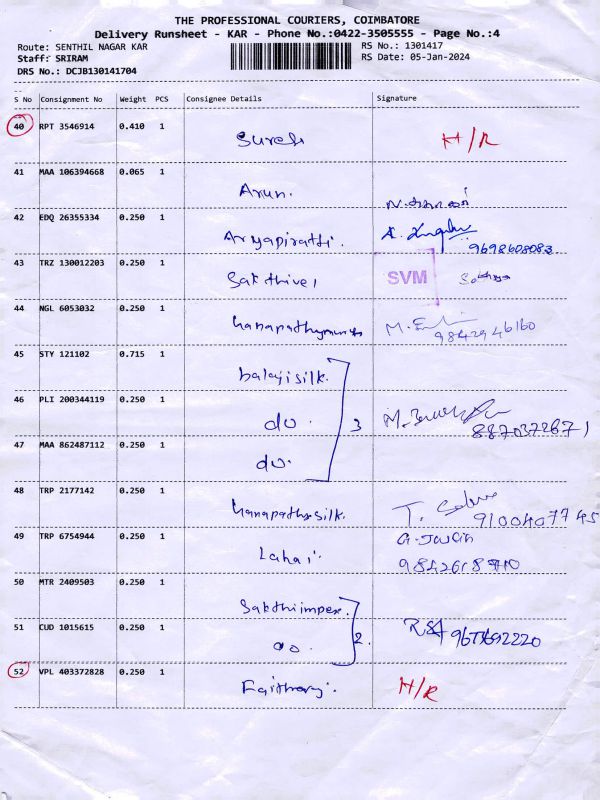 THE PROFESSIONAL COURIERS, COIMBATORE
Delivery Runsheet - KAR - Phone No.:0422-3505555 - Page No.:4
Route: SENTHIL NAGAR KAR RS No.: 1301417
Staff: SRIRAM RS Date: 05-Jan-2024
DRS No.: DCJB130141704
S No Consignment No Weight PCS Consignee Details Signature
40 RPT 3546914 0.410 1 Suresh H/R
41 MAA 106394668 0.065 1 Arun.
42 EDQ 26355334 0.250 1 Aryapiratti. 9698608083
43 TRZ 130012203 0.250 1 Sakthivel SVM
44 NGL 6053032 0.250 1 9842946160
45 STY 121102 0.715 1 balaji silk.
46 PLI 200344119 0.250 1 do. 3 8870372671
47 MAA 862487112 0.250 1 do.
48 TRP 2177142 0.250 1 Ganapathy silk. 9100407745
49 TRP 6754944 0.250 1
50 MTR 2409503 0.250 1 Sakthi impex.
51 CUD 1015615 0.250 1 do. 2.
52 VPL 403372828 0.250 1 H/R